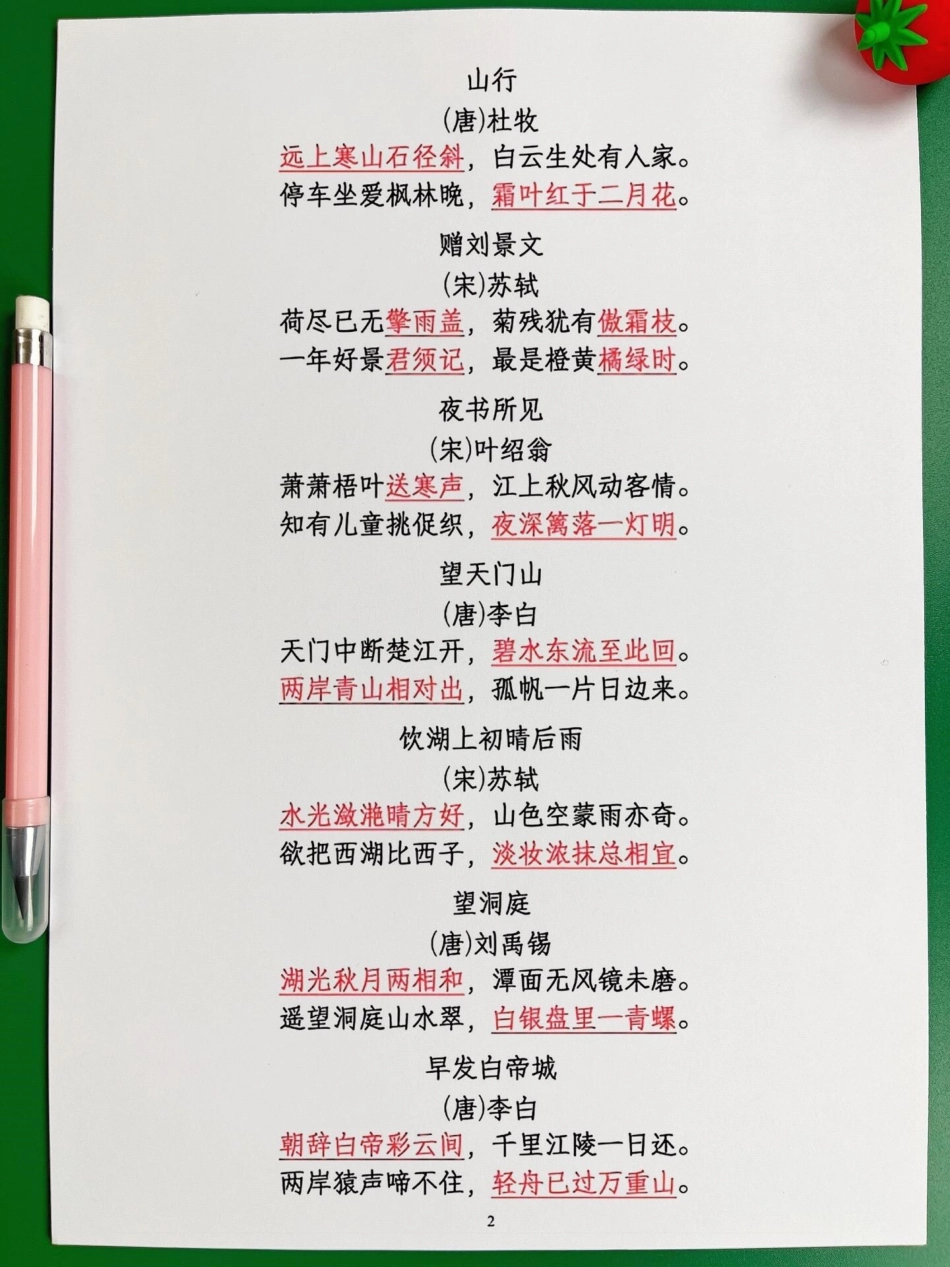 山行
(唐)杜牧
远上寒山石径斜，白云生处有人家。
停车坐爱枫林晚，霜叶红于二月花。
赠刘景文
(宋)苏轼
荷尽已无擎雨盖，菊残犹有傲霜枝。
一年好景君须记，最是橙黄橘绿时。
夜书所见
(宋)叶绍翁
萧萧梧叶送寒声，江上秋风动客情。
知有儿童挑促织，夜深篱落一灯明。
望天门山
(唐)李白
天门中断楚江开，碧水东流至此回。
两岸青山相对出，孤帆一片日边来。
饮湖上初晴后雨
(宋)苏轼
水光潋滟晴方好，山色空蒙雨亦奇。
欲把西湖比西子，淡妆浓抹总相宜。
望洞庭
(唐)刘禹锡
湖光秋月两相和，潭面无风镜未磨。
遥望洞庭山水翠，白银盘里一青螺。
早发白帝城
(唐)李白
朝辞白帝彩云间，千里江陵一日还。
两岸猿声啼不住，轻舟已过万重山。
2